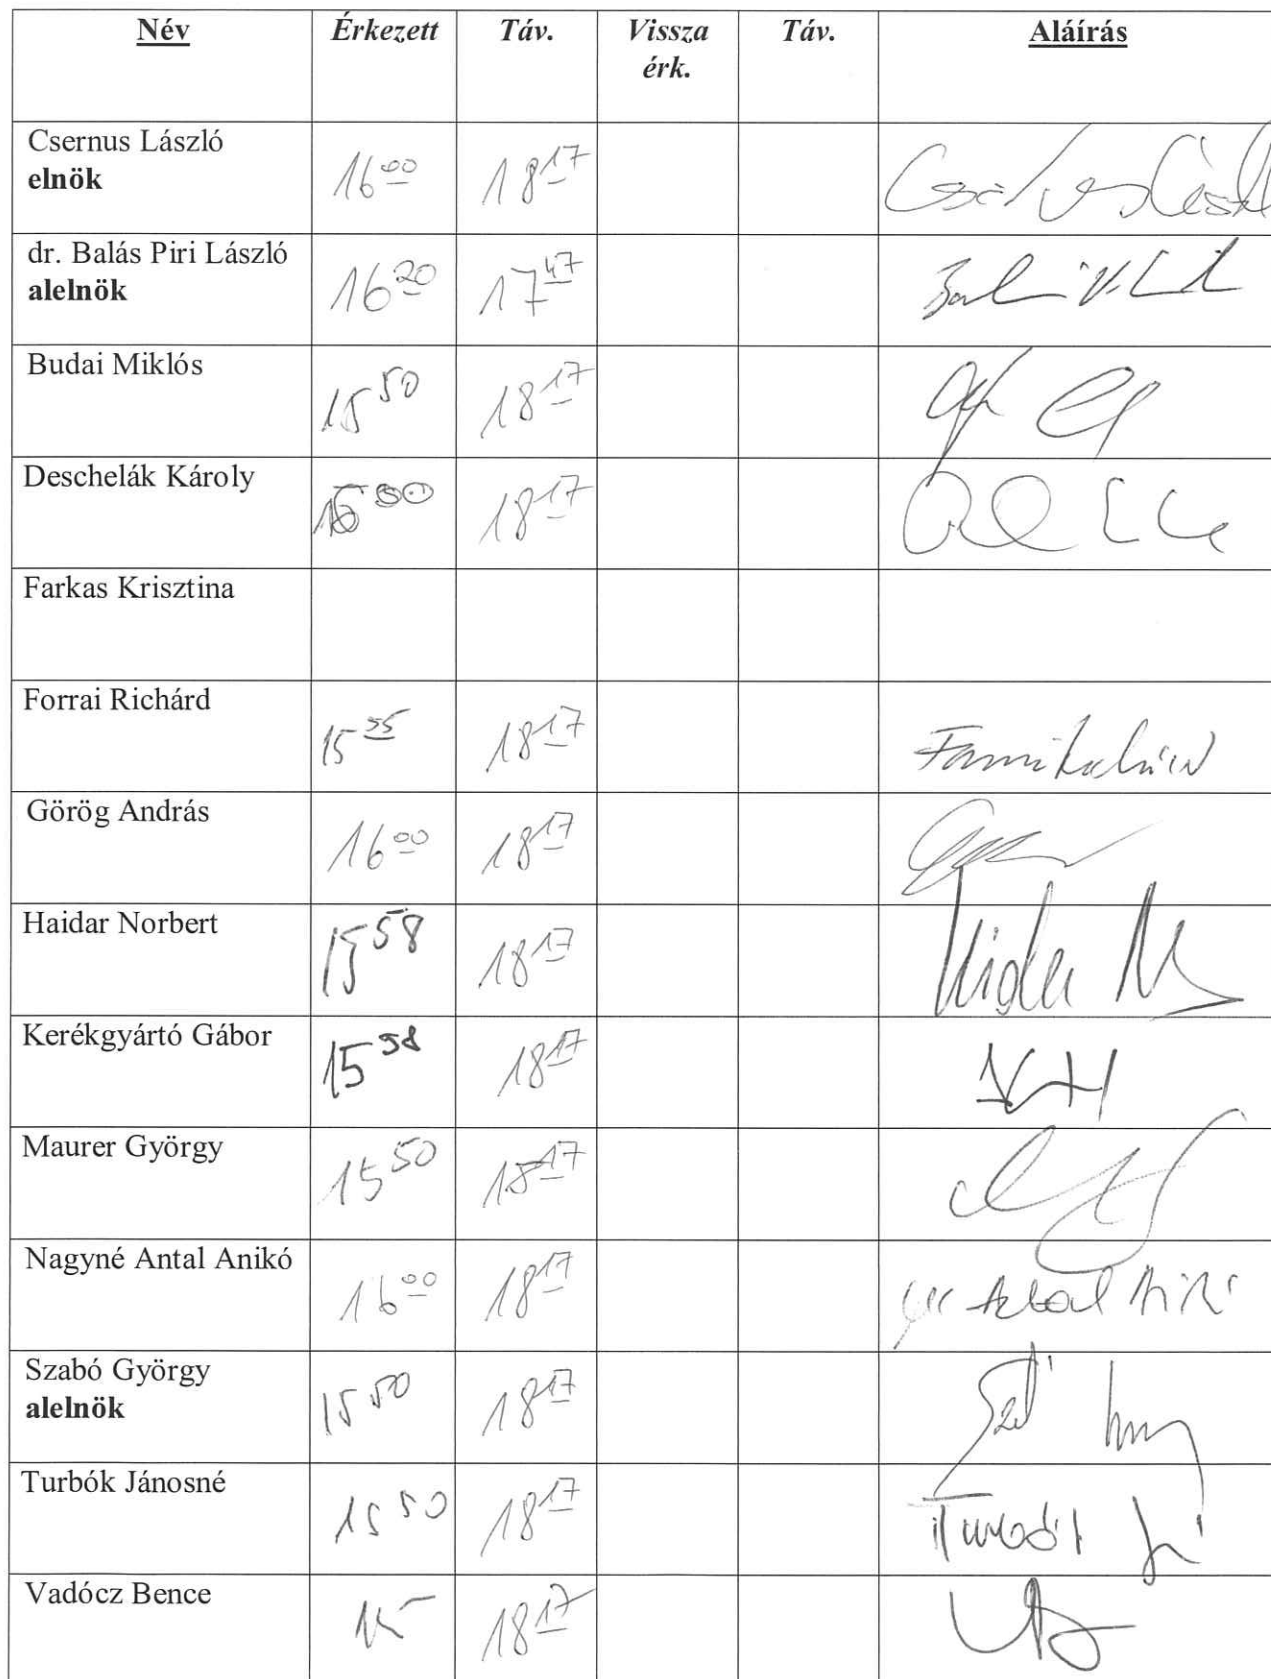 Név Érkezett Táv. Vissza érk. Táv. Aláírás
Csernus László 16 00 18 17
elnök
dr. Balás Piri László 16 20 17 47
alelnök
Budai Miklós 15 50 18 17
Deschelák Károly 18 17
Farkas Krisztina
Forrai Richárd 15 55 18 17
Görög András 16 00 18 17
Haidar Norbert 15 58 18 17
Kerékgyártó Gábor 15 58 18 17
Maurer György 15 50 18 17
Nagyné Antal Anikó 16 00 18 17
Szabó György 15 50 18 17
alelnök
Turbók Jánosné 15 50 18 17
Vadócz Bence 18 17